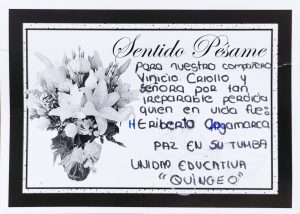 Sentido Pésame
Para nuestro compañero
Vinicio Criollo y
señora por tan
irreparable perdida
quien en vida fue:
Heriberto Angamarca
PAZ EN SU TUMBA
UNIDAD EDUCATIVA
"QUINGEO"